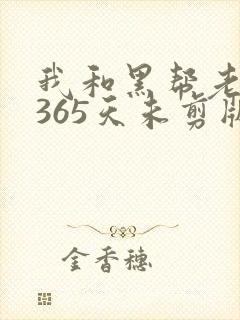 我和黑帮老
365天未剪版
金香穗